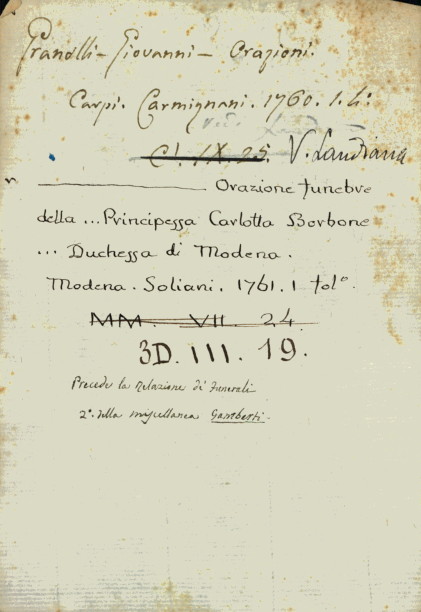 Granelli - Giovanni - Orazioni.
Carpi. Carmignani. 1760. 1. 4:
Cl. IX. 25. V. Landiana
Orazione funebre
della ... Principessa Carlotta Borbone
... Duchessa di Modena.
Modena. Soliani. 1761. 1 folº.
MM. VII. 24
3D. III. 19.
Precede la Relazione di Funerali
2ª. della miscellanea Gamberti.